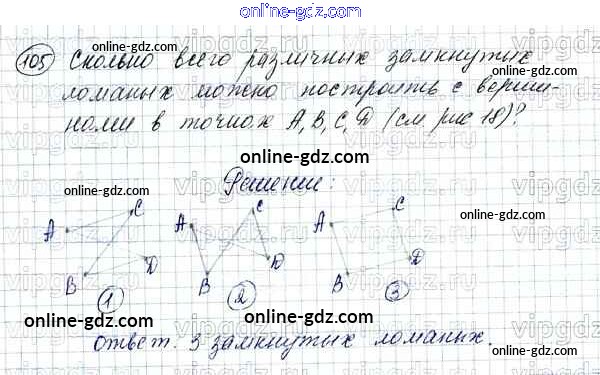 online-gdz.com
105 Сколько всего различных замкнутых
online-gdz.com
ломаных можно построить с верши-
online-gdz.com
нами в точках A, B, C, D (см рис 18)?
online-gdz.com
Решение:
online-gdz.com
A C B D 1
A C B D 2
A C B D 3
online-gdz.com
online-gdz.com
online-gdz.com
online-gdz.com
Ответ. 3 замкнутых ломаных.
online-gdz.com